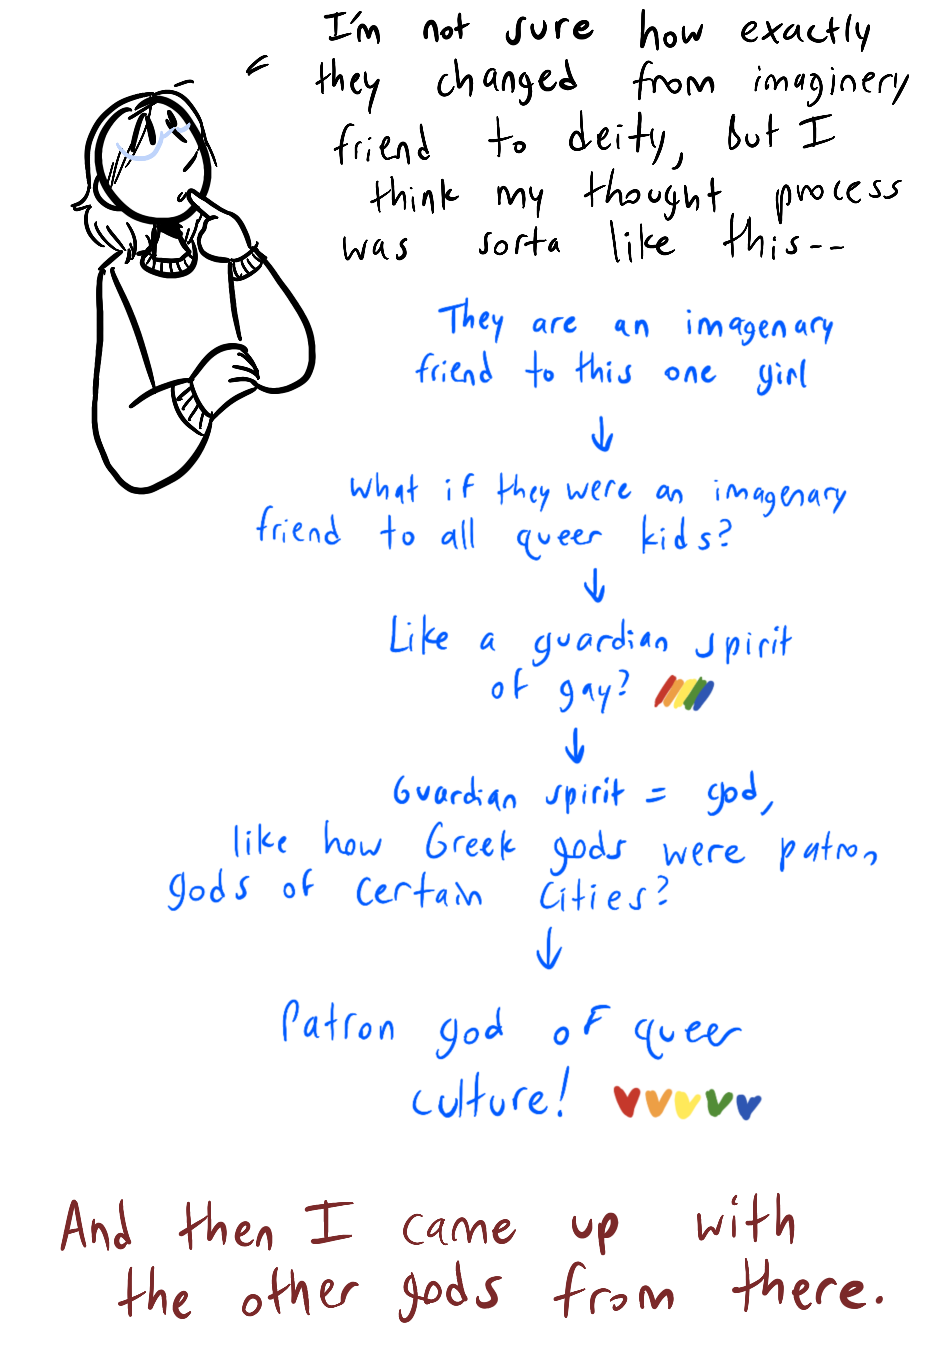 I'm not sure how exactly
they changed from imaginery
friend to deity, but I
think my thought process
was sorta like this--
They are an imagenary
friend to this one girl
↓
What if they were an imagenary
friend to all queer kids?
↓
Like a guardian spirit
of gay?
↓
Guardian spirit = god,
like how Greek gods were patron
gods of certain cities?
↓
Patron god of queer
culture!
And then I came up with
the other gods from there.